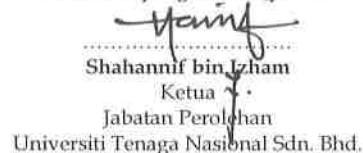 Shahannif bin Izham
Ketua
Jabatan Perolehan
Universiti Tenaga Nasional Sdn. Bhd.